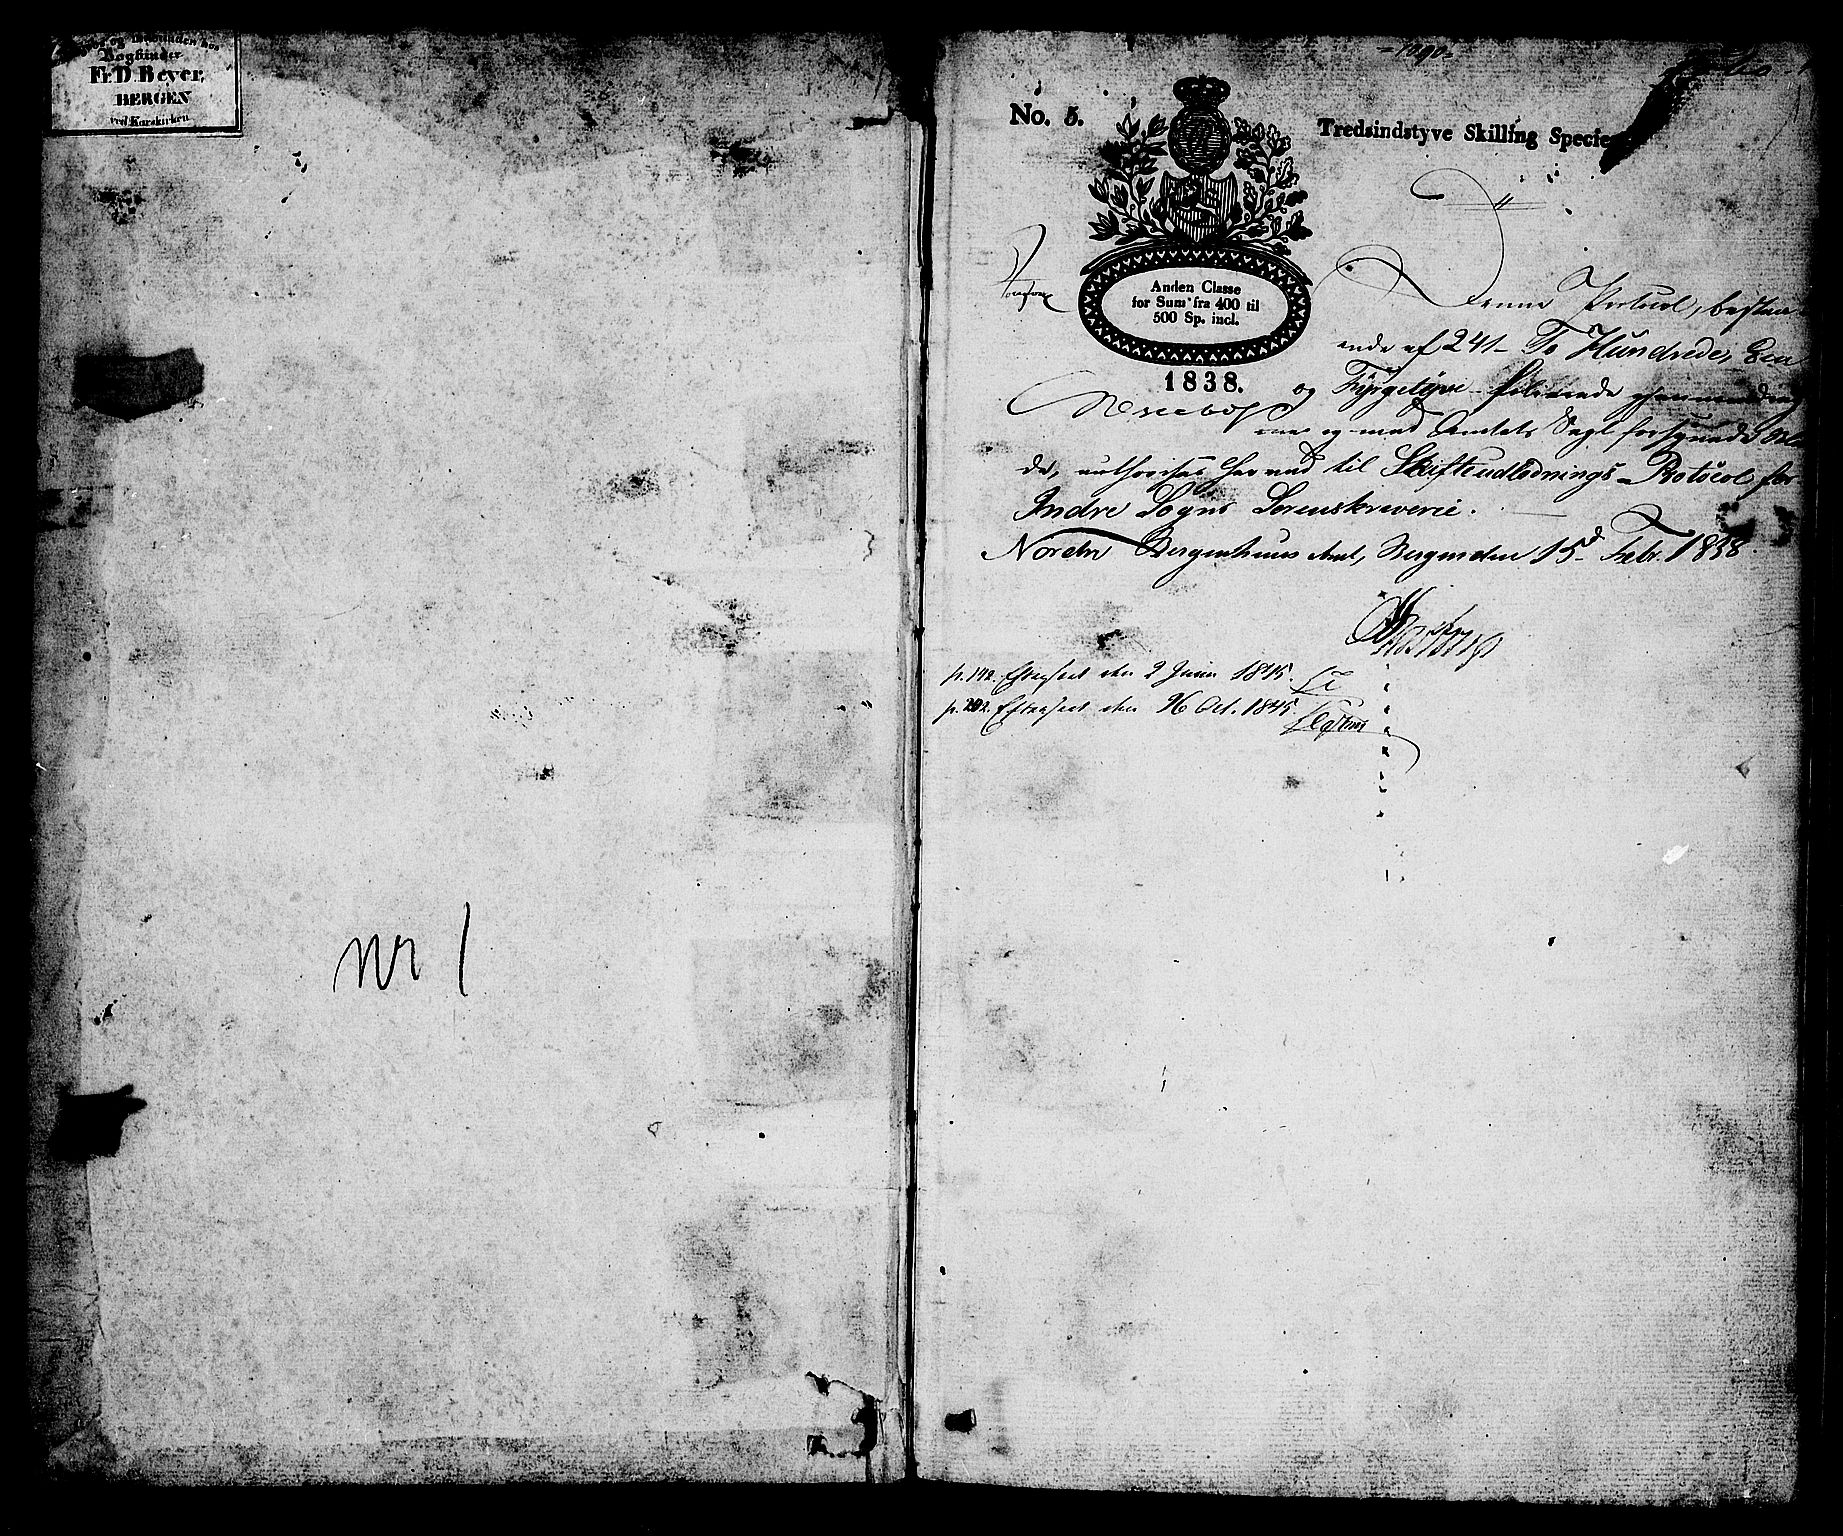 Bogbinder
Fr. D. Beyer,
BERGEN
ved Korskirken
nr 1
No. 5.
Tredsindstyve Skilling Specie
Anden Classe
for Sum fra 400 til
500 Sp. incl.
1838.
Denne Protocol, bestaa-
ende af 241 - To Hundrede, Een
og Fyrgetyve - folierede gjennemdrag
ne og med Amtets Segl forsynede Bla
de, authoriseres herved til Skifteudlodnings-Protocol for
Indre Sogns Sorenskriverie.
Nordre Bergenhuus Amt, Bergen den 15d Febr. 1838.
p. 142. Efterseet den 2 Juni 1845.
p. 202. Efterseet den 16 Oct. 1845